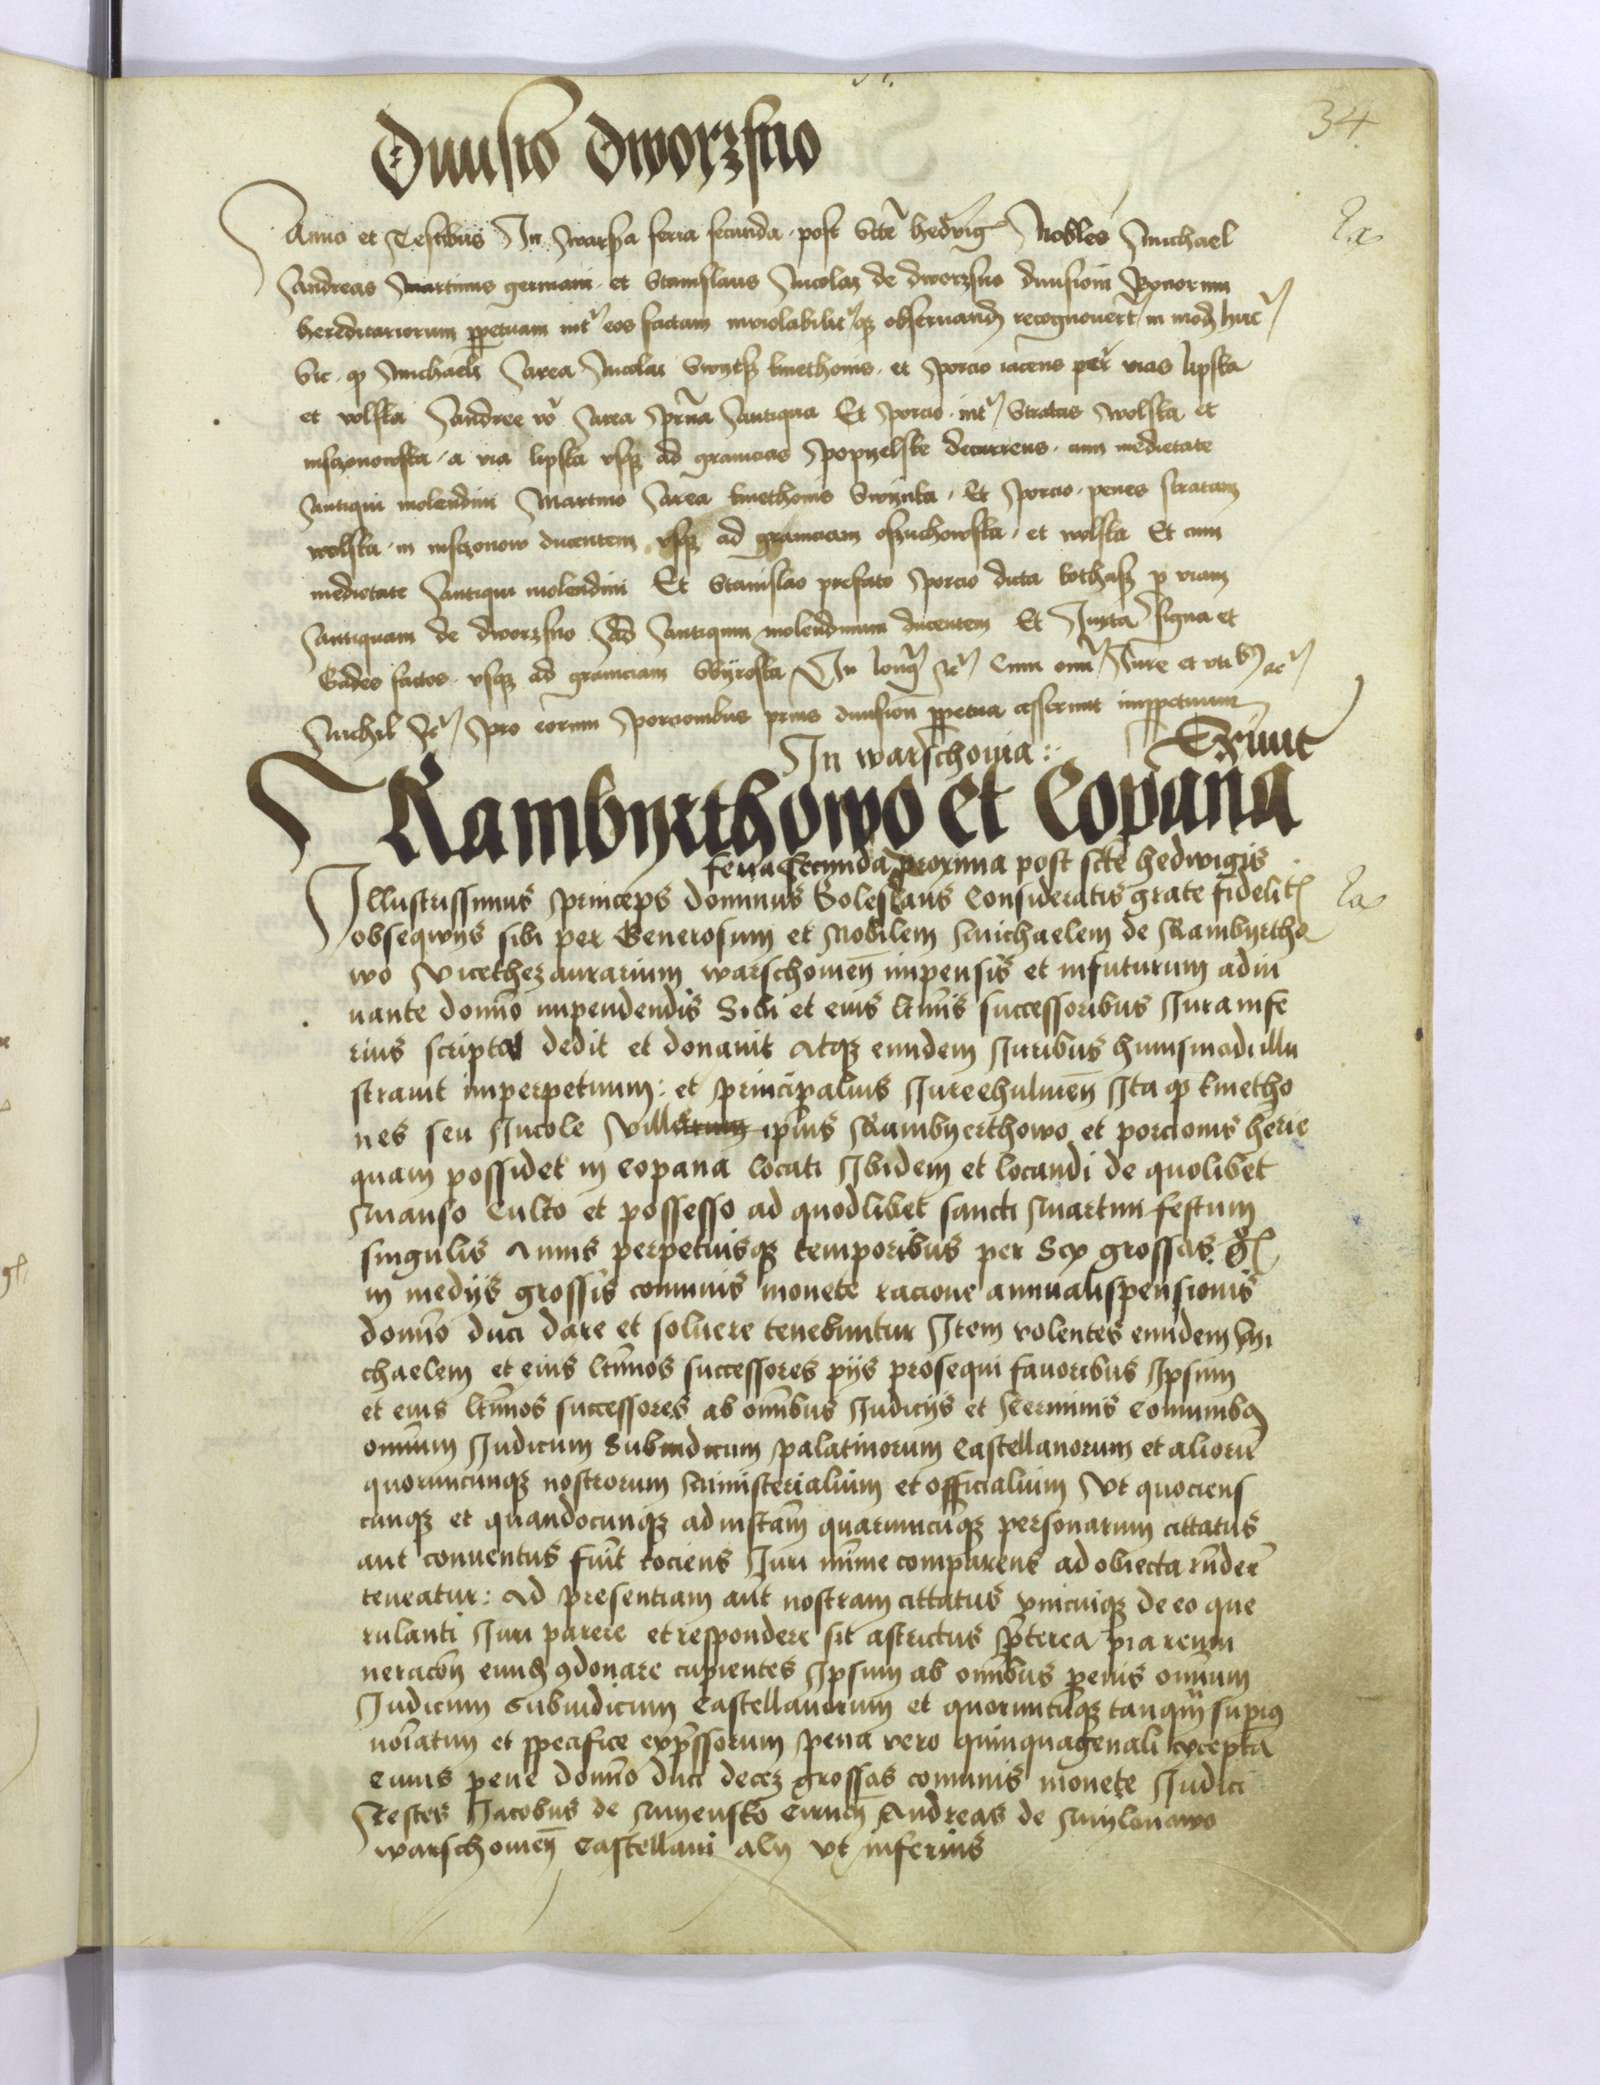 34.
Diuisio Dworzsno
Anno et Testibus In Warssa feria secunda post Scte hedvig Nobiles Michael
Andreas Martinus germani et Stanislaus Nicolai de dworzsno diuisionem Bonorum
hereditariorum ppetuam int eos factam inviolabilitqz obseruand recognouert in mod hunc
Sic qp Michaeli area Nicolai kmethonis et porcio iacens per vias lipska
et volska Andree vo area Antiqua Et porcio int stratas wolska et
msczonowska a via lipska vsqz ad granicias popyelske decurrens cum medietate
Antiqui molendini Martino area kmethonis Swynka Et porcio penes stratam
wolska in msczonow ducentem vsqz ad graniciam oszuchowska et wolska Et cum
medietate Antiqui molendini Et Stanislao prefato porcio dicta kothasz p viam
Antiquam de dworzsno ad Antiquum molendinum ducentem Et Iuxta signa et
Gades factos vsqz ad graniciam In long etc Cum omni Iure et vtilib etc
Nichil etc pro eorum porcionibus prius diuision ppetua cesserunt inppetuum
In warschouia : Exiuit
Rambyerthowo et Copana
feria secunda proxima post scte hedwigis
Ra
Illustrissimus princeps dominus Boleslaus Consideratis grate fidelit
obsequys sibi per Generosum et Nobilem Michaelem de Rambyertho
wo vicethezaurarium warschouien impensis et infuturum adiu
uante domino impendendis Sibi et eius ltimis successoribus Iura infe
rius scripta dedit et donauit atqz eundem Iuribus huiusmodi illu
strauit imperpetuum : et principalius Iure chulmen Ita qp kmetho
nes seu Incole ville ipius Rambyerthowo et porcionis herie
quam possidet in Copana locati Ibidem et locandi de quolibet
Manso culto et possesso ad quodlibet sancti Martini festum
singulis Annis perpetuisqz temporibus per Sex grossos gl
in medys grossis comunis monete racione annualis pensionis
domino duci dare et soluere tenebuntur Item volentes eundem Mi
chaelem et eius ltimos successores pys prosequi fauoribus Ipsum
et eius ltimos successores ab omibus Iudicys et terminis comunibq
omnium Iudicum Subiudicum palatinorum Castellanorum et alioru
quorumcunqz nostrorum Ministerialium et officialium Vt quociens
cunqz et quandocunqz ad instam quarumcuqz personarum cittatus
aut conuentus fuit tociens Iuri mime comparens ad obiecta rnder
teneatur : Ad presentiam aut nostram cittatus vnicuiqz de eo que
rulanti Iuri parere et respondere sit astrictus pterea pia remu
neracon eund 9donare cupientes Ipsum ab omibus penis omnium
Iudicum Subiudicum Castellanorum et quorumcuqz tanqm supius
noiatim et specifice expssorum pena vero quinquagenali excepta
Cuius pene domino duci decez grossos comunis monete Iudici
Testes Iacobus de Andreas de Mylonowo
warschouien Castellani aly vt inferius